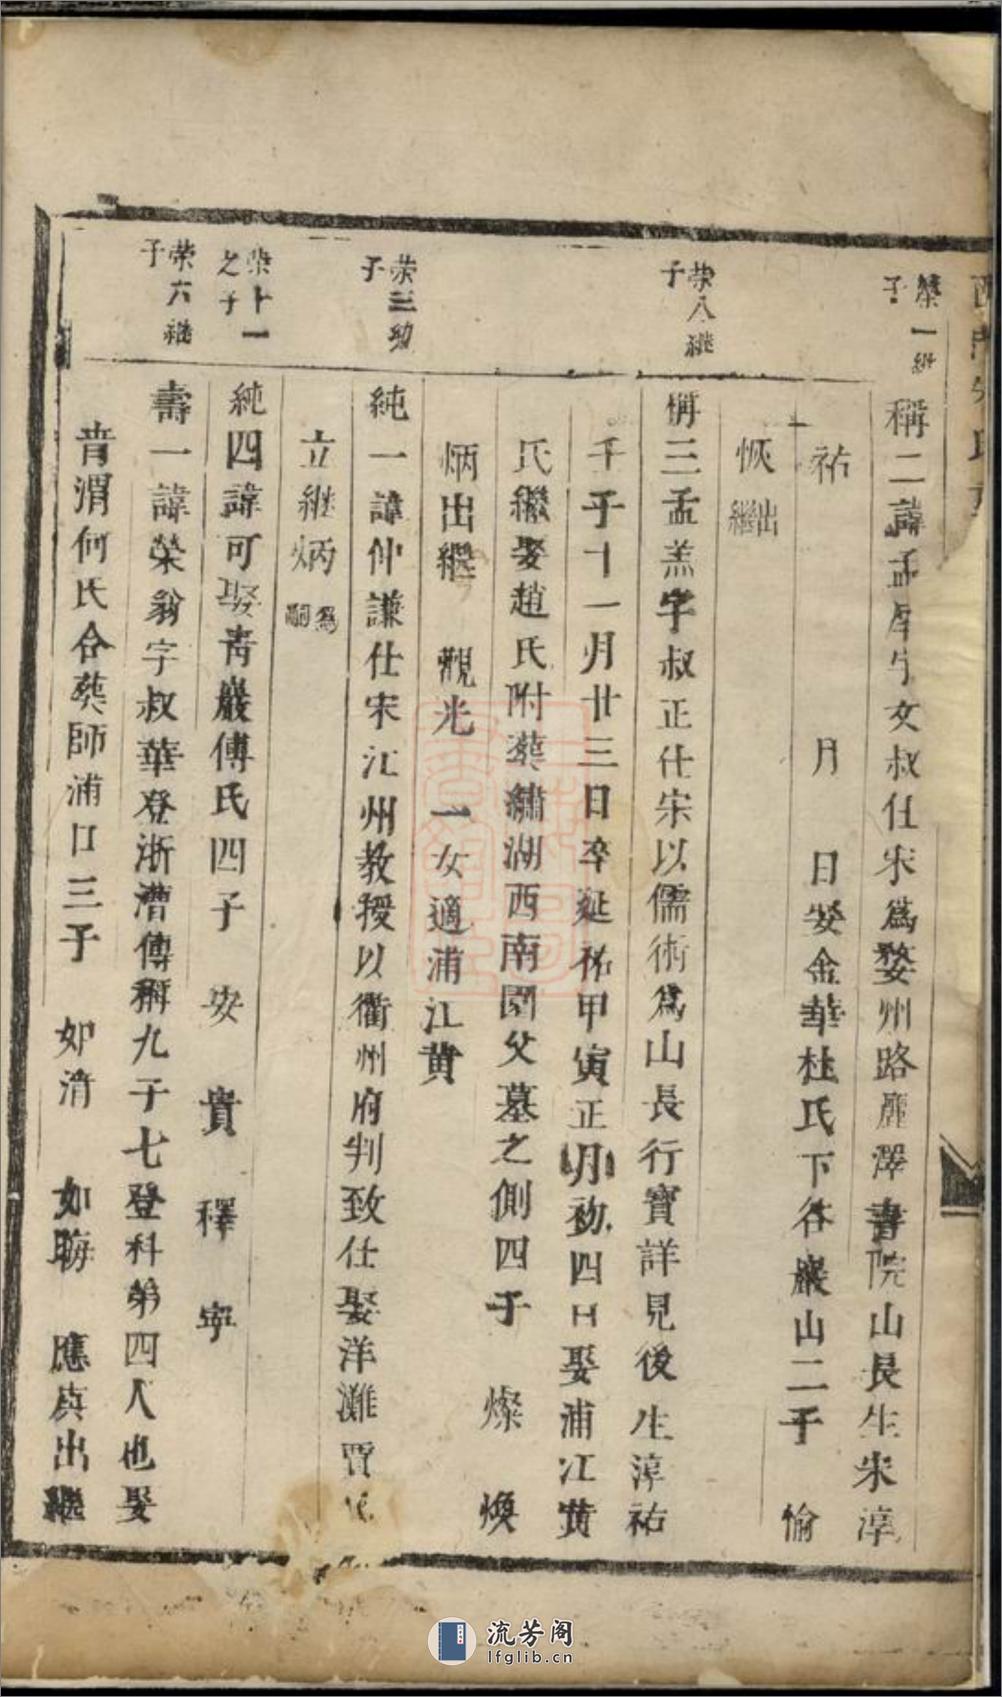 榮一繼子
稱二諱孟犀字文叔仕宋爲婺州路麗澤書院山長生宋淳
祐 月 日娶金華杜氏下谷巖山二子 愉
恢出繼
榮八繼子
稱三孟羔字叔正仕宋以儒術爲山長行實詳見後生淳祐
壬子十一月廿三日卒延祐甲寅正月初四日娶浦江黄
氏繼娶趙氏附葬繡湖西南園父墓之側四子 燦 煥
炳出繼 觀光 一女適浦江黄
榮三幼子
純一諱仲謙仕宋江州教授以衢州府判致仕娶洋灘賈氏
立繼炳爲嗣
榮十一之子
純四諱可娶青巖傅氏四子 安 貴 釋 寧
榮六繼子
壽一諱榮翁字叔華登浙漕傅稱九子七登科第四人也娶
音渭何氏合葬師浦口三子 如清 如晦 應 出繼
流芳阁
lfglib.cn